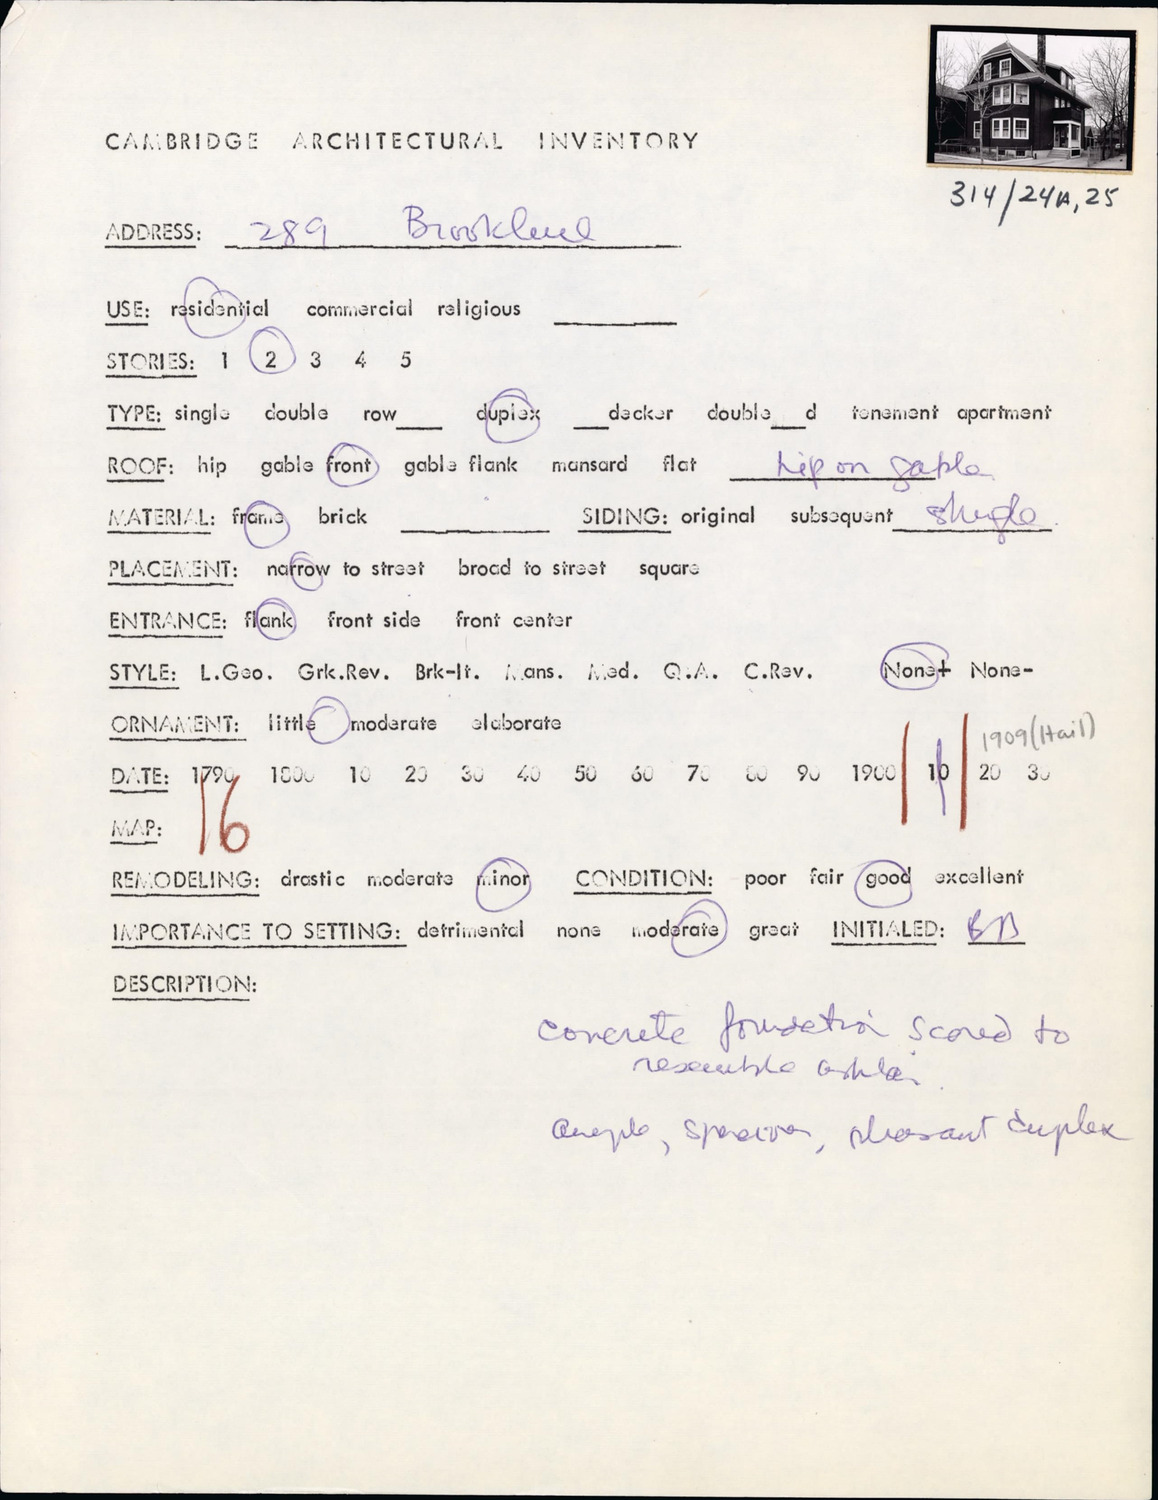 314/24A, 25
CAMBRIDGE ARCHITECTURAL INVENTORY
ADDRESS: 289 Brookline
USE: residential commercial religious
STORIES: 1 2 3 4 5
TYPE: single double row___ duplex ___decker double___d tenement apartment
ROOF: hip gable front gable flank mansard flat hip on gable
MATERIAL: frame brick SIDING: original subsequent shingle
PLACEMENT: narrow to street broad to street square
ENTRANCE: flank front side front center
STYLE: L.Geo. Grk.Rev. Brk-It. Mans. Med. Q.A. C.Rev. None+ None-
ORNAMENT: little moderate elaborate
1909 (Hail)
DATE: 1790 1800 10 20 30 40 50 60 70 80 90 1900 10 20 30
MAP: 16
REMODELING: drastic moderate minor CONDITION: poor fair good excellent
IMPORTANCE TO SETTING: detrimental none moderate great INITIALED:
DESCRIPTION:
concrete foundation scored to
resemble ashlar.
ample, spacious, pleasant duplex